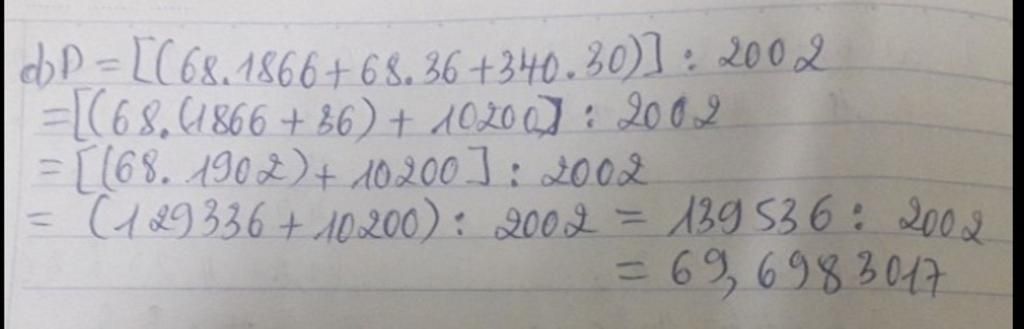 d) D = [(68.1866 + 68.36 + 340.30)] : 2002
= [(68.(1866 + 36) + 10200] : 2002
= [(68. 1902) + 10200] : 2002
= (129336 + 10200) : 2002 = 139536 : 2002
= 69,6983017